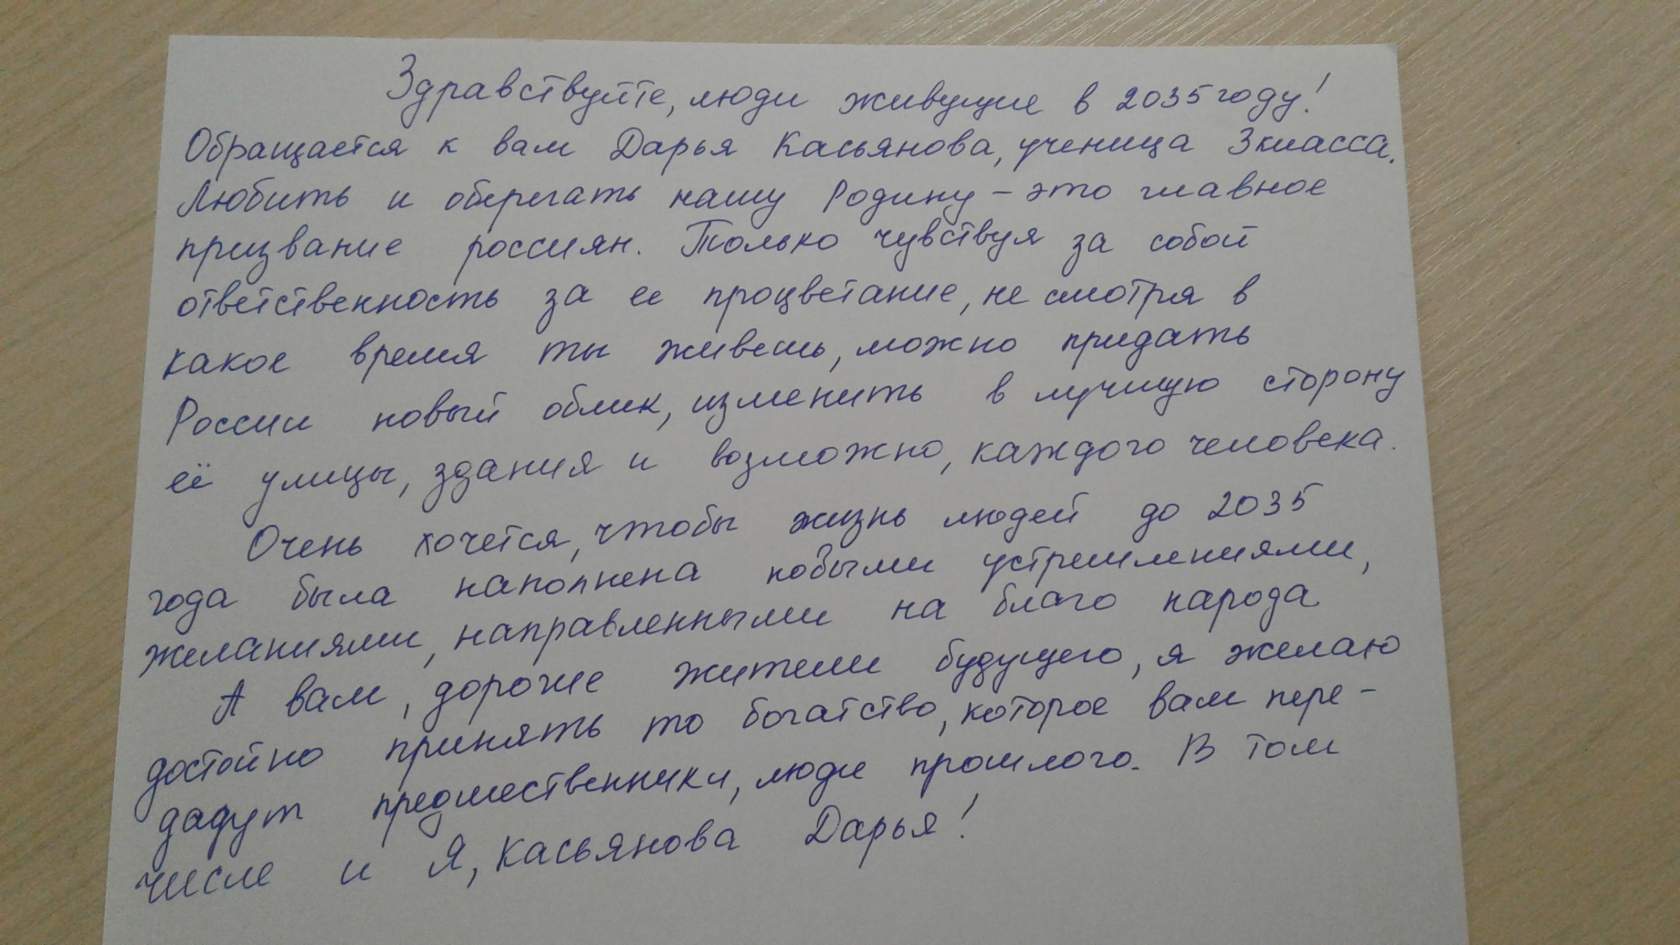 Здравствуйте, люди живущие в 2035 году!
Обращается к вам Дарья Касьянова, ученица 3 класса.
Любить и оберегать нашу Родину – это главное
призвание россиян. Только чувствуя за собой
ответственность за ее процветание, не смотря в
какое время ты живешь, можно придать
России новый облик, изменить в лучшую сторону
её улицы, здания и возможно, каждого человека.
Очень хочется, чтобы жизнь людей до 2035
года была наполнена новыми устремлениями,
желаниями, направленными на благо народа
А вам, дорогие жители будущего, я желаю
достойно принять то богатство, которое вам пере-
дадут предшественники, люди прошлого. В том
числе и Я, Касьянова Дарья!